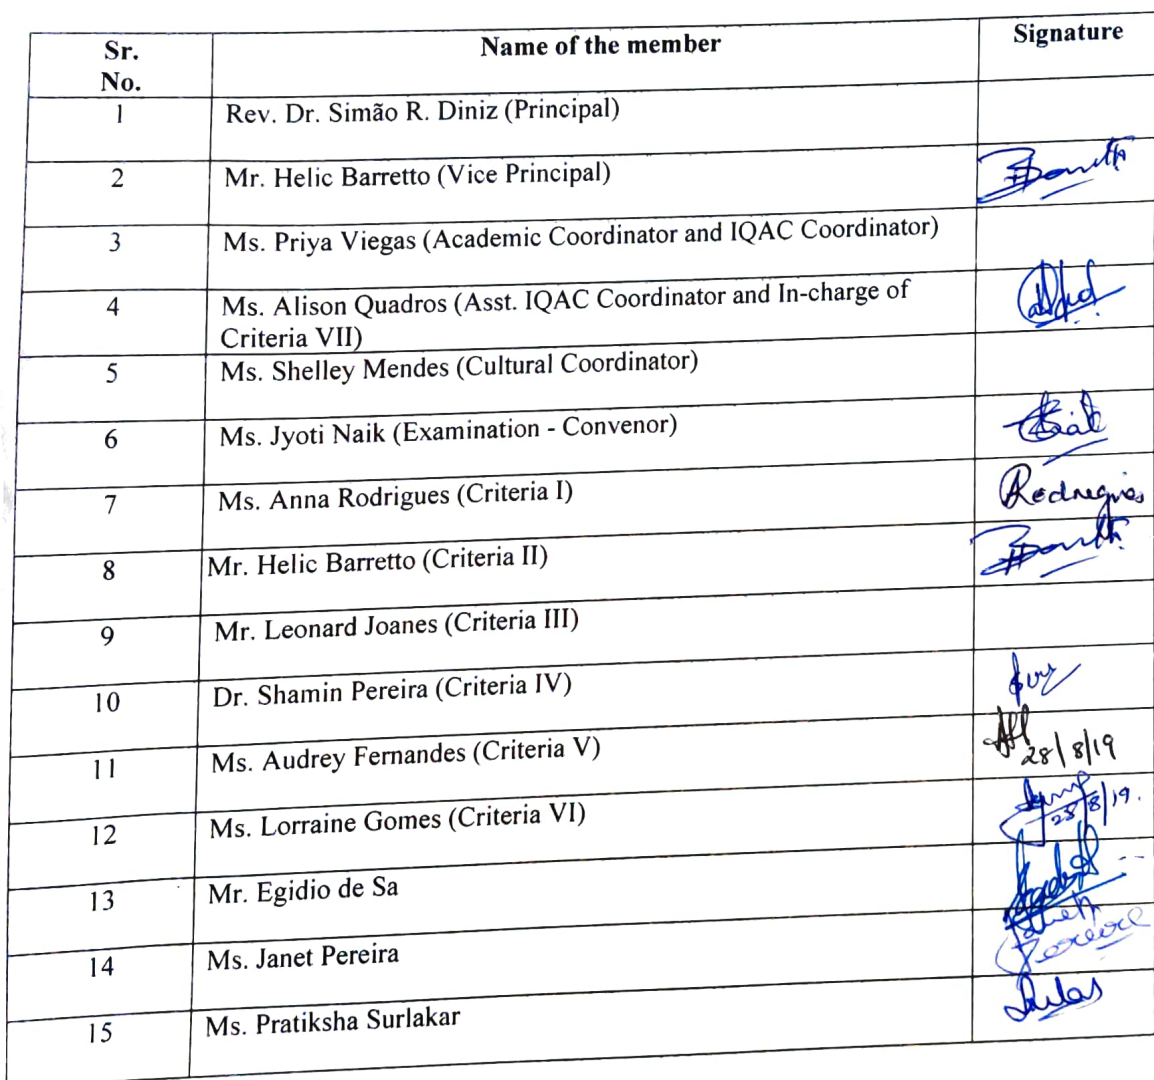 Sr.
No.
Name of the member
Signature
1
Rev. Dr. Simão R. Diniz (Principal)
2
Mr. Helic Barretto (Vice Principal)
3
Ms. Priya Viegas (Academic Coordinator and IQAC Coordinator)
4
Ms. Alison Quadros (Asst. IQAC Coordinator and In-charge of
Criteria VII)
5
Ms. Shelley Mendes (Cultural Coordinator)
6
Ms. Jyoti Naik (Examination - Convenor)
7
Ms. Anna Rodrigues (Criteria I)
Rodrigues
8
Mr. Helic Barretto (Criteria II)
9
Mr. Leonard Joanes (Criteria III)
10
Dr. Shamin Pereira (Criteria IV)
11
Ms. Audrey Fernandes (Criteria V)
28/8/19
12
Ms. Lorraine Gomes (Criteria VI)
28/8/19.
13
Mr. Egidio de Sa
14
Ms. Janet Pereira
Pereira
15
Ms. Pratiksha Surlakar